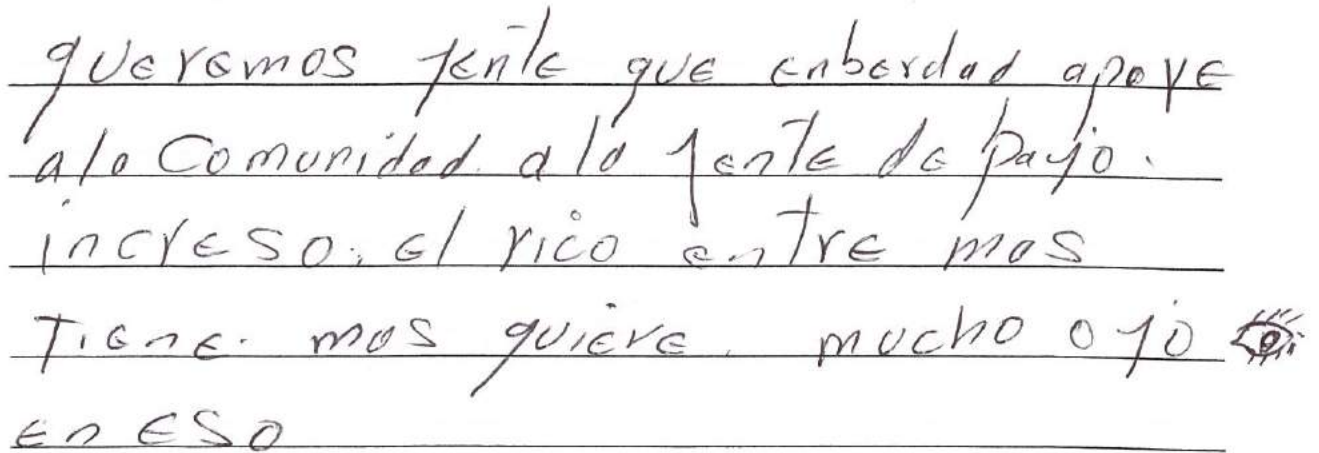 queremos jente que enberdad apoye
a la Comunidad. a la jente de bajo.
increso. el rico entre mas
Tiene. mas quiere. mucho ojo
en eso